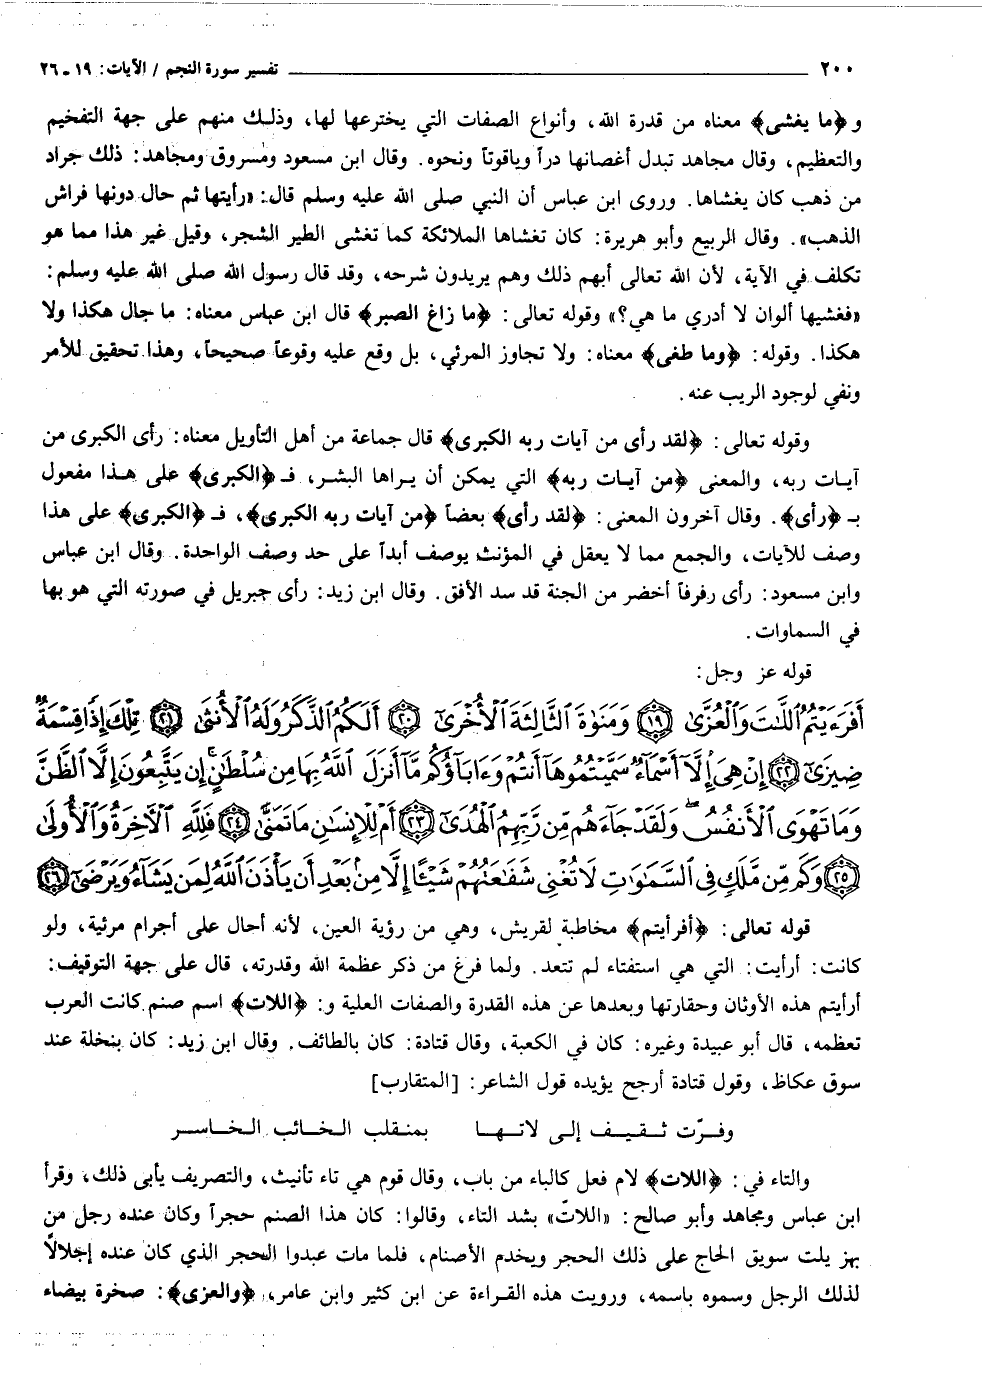 ٢٠٠ ــــــــ تفسير سورة النجم / الآيات: ١٩ ـ ٢٦
و﴿ما يغشى﴾ معناه من قدرة الله، وأنواع الصفات التي يخترعها لها، وذلك منهم على جهة التفخيم
والتعظيم، وقال مجاهد تبدل أغصانها دراً وياقوتاً ونحوه. وقال ابن مسعود ومسروق ومجاهد: ذلك جراد
من ذهب كان يغشاها. وروى ابن عباس أن النبي صلى الله عليه وسلم قال: «رأيتها ثم حال دونها فراش
الذهب». وقال الربيع وأبو هريرة: كان تغشاها الملائكة كما تغشى الطير الشجر، وقيل غير هذا مما هو
تكلف في الآية، لأن الله تعالى أبهم ذلك وهم يريدون شرحه، وقد قال رسول الله صلى الله عليه وسلم:
«فغشيها ألوان لا أدري ما هي؟» وقوله تعالى: ﴿ما زاغ الصبر﴾ قال ابن عباس معناه: ما جال هكذا ولا
هكذا. وقوله: ﴿وما طغى﴾ معناه: ولا تجاوز المرئي، بل وقع عليه وقوعاً صحيحاً، وهذا تحقيق للأمر
ونفي لوجود الريب عنه.
وقوله تعالى: ﴿لقد رأى من آيات ربه الكبرى﴾ قال جماعة من أهل التأويل معناه: رأى الكبرى من
آيات ربه، والمعنى ﴿من آيات ربه﴾ التي يمكن أن يراها البشر، فـ ﴿الكبرى﴾ على هذا مفعول
بـ ﴿رأى﴾. وقال آخرون المعنى: ﴿لقد رأى﴾ بعضاً ﴿من آيات ربه الكبرى﴾، فـ ﴿الكبرى﴾ على هذا
وصف للآيات، والجمع مما لا يعقل في المؤنث يوصف أبداً على حد وصف الواحدة. وقال ابن عباس
وابن مسعود: رأى رفرفاً أخضر من الجنة قد سد الأفق. وقال ابن زيد: رأى جبريل في صورته التي هو بها
في السماوات.
قوله عز وجل:
أَفَرَءَيْتُمُ ٱللَّٰتَ وَٱلْعُزَّىٰ ﴿١٩﴾ وَمَنَوٰةَ ٱلثَّالِثَةَ ٱلْأُخْرَىٰٓ ﴿٢٠﴾ أَلَكُمُ ٱلذَّكَرُ وَلَهُ ٱلْأُنثَىٰ ﴿٢١﴾ تِلْكَ إِذًا قِسْمَةٌ
ضِيزَىٰٓ ﴿٢٢﴾ إِنْ هِىَ إِلَّآ أَسْمَآءٌ سَمَّيْتُمُوهَآ أَنتُمْ وَءَابَآؤُكُم مَّآ أَنزَلَ ٱللَّهُ بِهَا مِن سُلْطَٰنٍ ۚ إِن يَتَّبِعُونَ إِلَّا ٱلظَّنَّ
وَمَا تَهْوَى ٱلْأَنفُسُ ۖ وَلَقَدْ جَآءَهُم مِّن رَّبِّهِمُ ٱلْهُدَىٰٓ ﴿٢٣﴾ أَمْ لِلْإِنسَٰنِ مَا تَمَنَّىٰ ﴿٢٤﴾ فَلِلَّهِ ٱلْءَاخِرَةُ وَٱلْأُولَىٰ
﴿٢٥﴾ وَكَم مِّن مَّلَكٍ فِى ٱلسَّمَٰوَٰتِ لَا تُغْنِى شَفَٰعَتُهُمْ شَيْـًٔا إِلَّا مِنۢ بَعْدِ أَن يَأْذَنَ ٱللَّهُ لِمَن يَشَآءُ وَيَرْضَىٰٓ ﴿٢٦﴾
قوله تعالى: ﴿أفرأيتم﴾ مخاطبة لقريش، وهي من رؤية العين، لأنه أحال على أجرام مرئية، ولو
كانت: أرأيت: التي هي استفتاء لم تتعد. ولما فرغ من ذكر عظمة الله وقدرته، قال على جهة التوقيف:
أرأيتم هذه الأوثان وحقارتها وبعدها عن هذه القدرة والصفات العلية و: ﴿اللات﴾ اسم صنم كانت العرب
تعظمه، قال أبو عبيدة وغيره: كان في الكعبة، وقال قتادة: كان بالطائف. وقال ابن زيد: كان بنخلة عند
سوق عكاظ، وقول قتادة أرجح يؤيده قول الشاعر: [المتقارب]
وفرّت ثقيف إلى لاتها بمنقلب الخائب الخاسر
والتاء في: ﴿اللات﴾ لام فعل كالباء من باب، وقال قوم هي تاء تأنيث، والتصريف يأبى ذلك، وقرأ
ابن عباس ومجاهد وأبو صالح: «اللاتّ» بشد التاء، وقالوا: كان هذا الصنم حجراً وكان عنده رجل من
بهز يلت سويق الحاج على ذلك الحجر ويخدم الأصنام، فلما مات عبدوا الحجر الذي كان عنده إجلالًا
لذلك الرجل وسموه باسمه، ورويت هذه القراءة عن ابن كثير وابن عامر، ﴿والعزى﴾: صخرة بيضاء